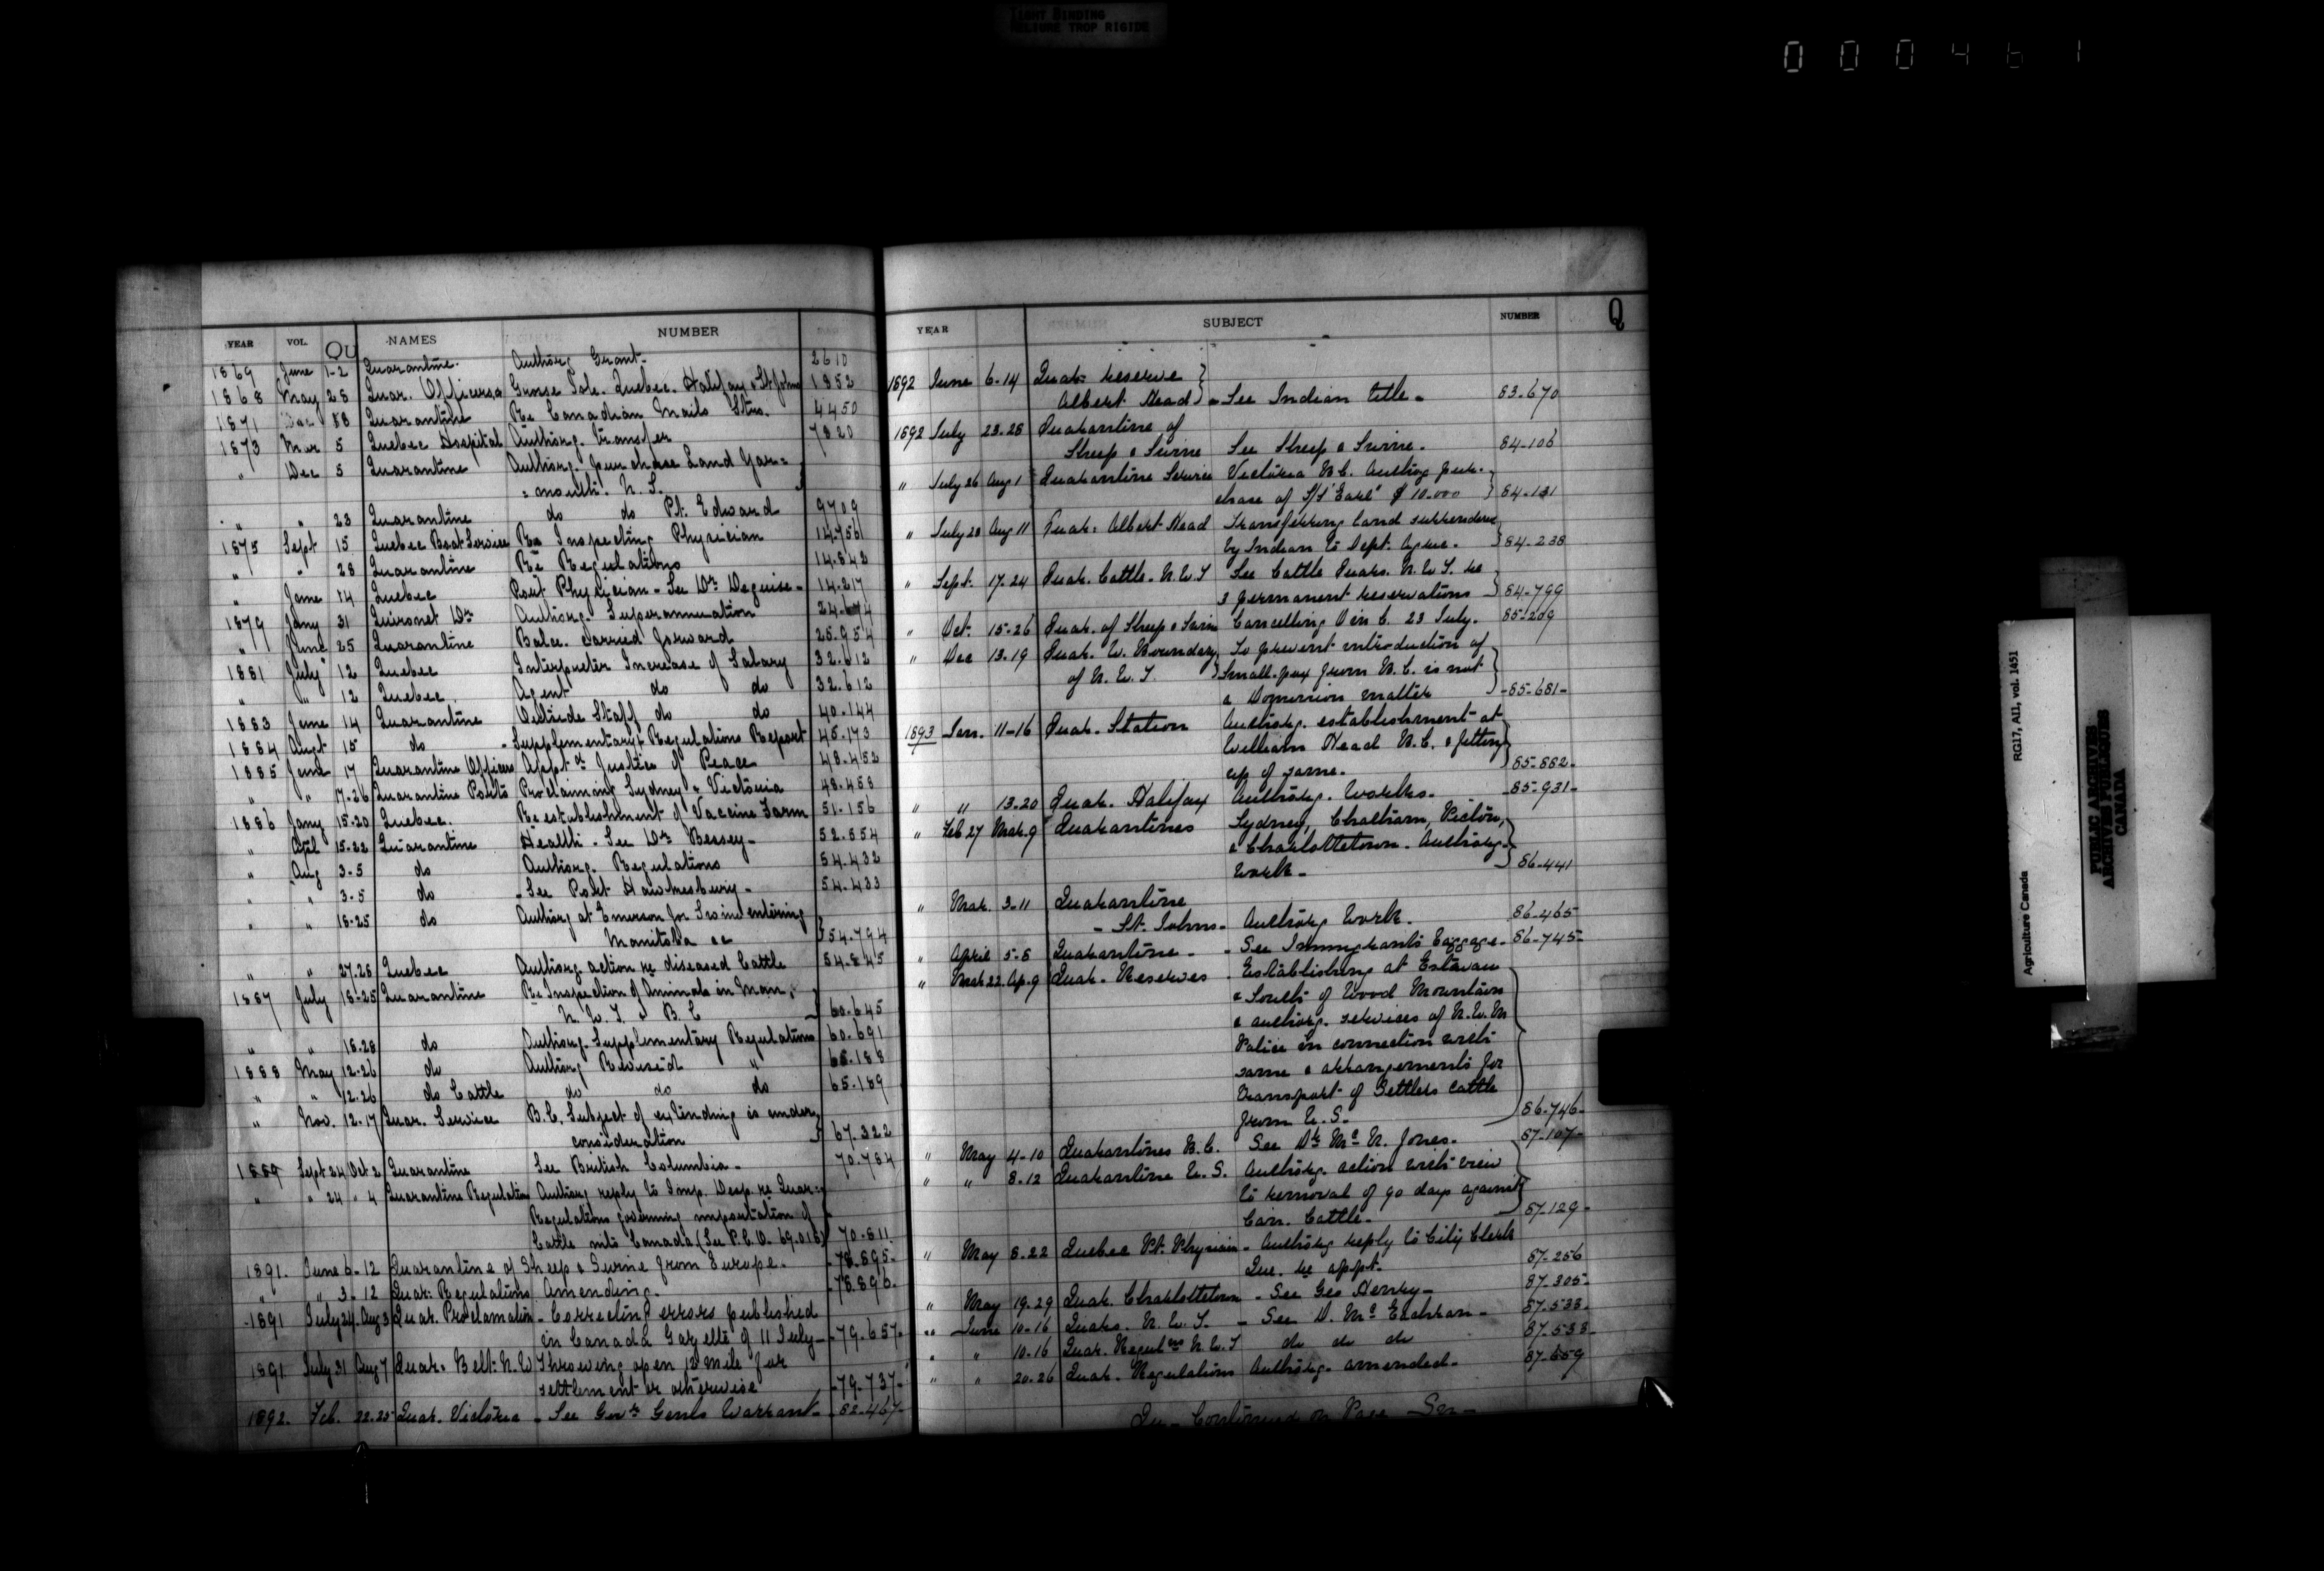 TIGHT BINDING
RELIURE TROP RIGIDE
000461
YEAR VOL. Qu NAMES NUMBER
1869 June 1-2 Quarantine. Authorg Grant- 2610
1868 May 28 Quar. Officers @ Grosse Isle. Quebec. Halifax & St Johns 1852
1871 88 Quarantine Re Canadian Mails Strs. 4450
1873 Mar 5 Quebec Hospital Authorg. transfer 7820
" Dec 5 Quarantine Authorg. purchase Land Yar=
=mouth. N. S.
" " 23 Quarantine do do Pt. Edward 9709
1875 Sept 15 Quebec Boat Service Re Inspecting Physician 14.756
" " 28 Quarantine Re Regulations 14.842
" June 14 Quebec Port Physician - See Dr Deguise- 14.217
1879 Jany 31 Quironet Dr Authorg. Superannuation
" June 25 Quarantine Balce. Carried forward 25.954
1881 July 12 Quebec Interpreter Increase of Salary 32.612
" " 12 Quebec Agent do do 32.612
1883 June 14 Quarantine Outside Staff do do 40.144
1884 Augt 15 do - Supplementary Regulations Report 45.173
1885 June 17 Quarantine Officers Appt as Justice of Peace 48.452
" " 17-26 Quarantine Ports Proclaiming Sydney & Victoria 48.458
1886 Jany 15-20 Quebec. Re establishment of Vaccine Farm 51.156
" April 15-22 Quarantine Health - See Dr Bessey- 52.554
" Aug 3-5 do Authorg. Regulations 54.432
" " 3-5 do - See Port Hawkesbury- 54.433
" " 18-25 do Authorg at Emerson for Swine entering
Manitoba &c 54.794
" " 27.28 Quebec Authorg. action re diseased Cattle 54.845
1887 July 18-25 Quarantine Re Inspection of Animals in Man,
N. W. T. & B. C 60.645
" " 18-28 do Authorg. Supplementary Regulations 60.691
1888 May 12-26 do Authorg Revised " 65.188
" " 12-26 do Cattle do do do 65.189
" Nov. 12-17 Quar. Service B.C. Subject of extending is under
consideration 67.322
1889 Sept 24 Oct 2 Quarantine See British Columbia- 70.784
" " 24 " 4 Quarantine Regulation Authorg reply to Imp. Desp. re Quar=
Regulations governing importation of
Cattle into Canada (See P.C.O- 69.016) 70-811
1891. June 6-12 Quarantine of Sheep & Swine from Europe. 78.895-
" " 3-12 Quar: Regulations Amending. -78.896-
-1891 July 24. Aug 3 Quar. Proclamation - Correcting errors published
in Canada Gazette of 11 July- -79.657-
1891. July 31 Aug 7 Quar: Belt. N.W Throwing open 12 mile for
settlement or otherwise -79-737-
1892. Feb. 22.25 Quar. Victoria - See Govr Genls Warrant- -82-467-
YEAR SUBJECT NUMBER Q
1892 June 6-14 Quar: reserve
Albert Head - See Indian title- 83.670
1892 July 23.28 Quarantine of
Sheep & Swine See Sheep & Swine. 84-106
" July 26 Aug 1 Quarantine Service Victoria B.C. Authorg pur-
chase of S/S "Earl" $10.000 84-131
" July 28 Aug 11 Quar: Albert Head Transferring land surrendered
by Indian to Dept. Agric. 84-238
" Sept. 17-24 Quar. Cattle. N.W.T See Cattle Quars. N.W.T. re
3 permanent reservations 84-799
" Oct. 15-26 Quar. of Sheep & Swine Cancelling O in C. 23 July. 85-209
" Dec 13.19 Quar. W. Boundary To prevent introduction of
of N. W. T. Small-pox from B.C. is not
a Dominion matter -85-681-
1893 Jan. 11-16 Quar. Station Authorg. establishment at
William Head B.C. & fitting
up of same. 85-882-
" " 13.20 Quar. Halifax Authorg. Works. -85-931-
" Feb 27 Mar. 9 Quarantines Sydney, Chatham, Pictou,
& Charlottetown. Authorg.
work- 86-441
" Mar. 3-11 Quarantine
- St. Johns- Authorg Work. 86-465
" April 5-8 Quarantine- - See Immigrants Baggage- 86-745-
" Mar 22. Ap. 9 Quar. Reserves - Establishing at Estevan
& South of Wood Mountain
& authorg. services of N.W.M
Police in connection with
same & arrangements for
transport of Settlers cattle
from U.S- 86-746-
" May 4-10 Quarantines B.C. See Dr Mc N. Jones. 87-107-
" " 8.12 Quarantine U. S. Authorg. action with view
to removal of 90 days against
Can. Cattle- 87-129-
" May 8.22 Quebec Pt. Physician - Authorg reply to City Clerk
Que. re appt- 87-256
" May 19.29 Quar. Charlottetown - See Geo Henry- 87-305-
" June 10-16 Quars. N.W.T. - See D. Mc Eachran- 87-538-
" " 10-16 Quar. Reguls N.W.T do do do 87-538-
" " 20-26 Quar. Regulations Authorg. amended- 87-659
Qu- Continued on Page
Agriculture Canada RG17, A11, vol. 1451
PUBLIC ARCHIVES
ARCHIVES PUBLIQUES
CANADA